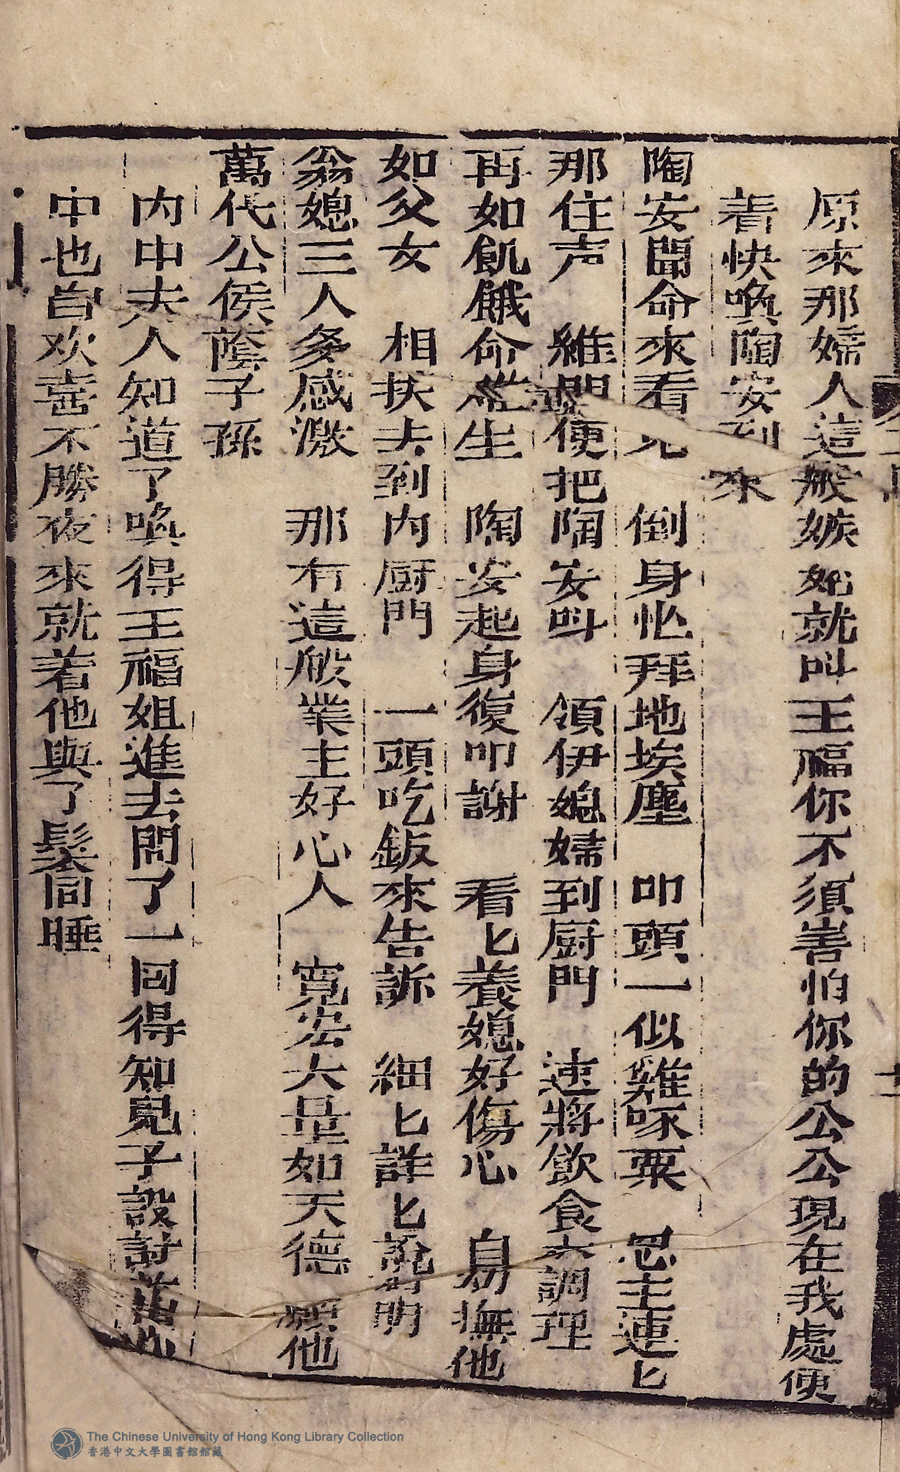 原來那媳人這般嫉妬就叫王福你不須害怕你的公公現在我處便
着快喚陶安到來
陶安聞命來看見　倒身忙拜地埃塵　叩頭一似雞啄粟　恩主連匕
那住声　維門便把陶安叫　領伊媳婦到厨門　速將飲食來調理
再如飢餓命难生　陶安起身復叩謝　看匕養媳好傷心　自幼撫他
如父女　相扶去到内厨門　一頭吃飯來告訴　細匕詳匕說明
翁媳三人多感激　那有這般業主好心人　寬宏大量如天德　願他
萬代公侯蔭子孫
内中夫人知道了喚得王福姐進去問了一回得知兒子設討
中也自欢喜不勝夜來就着他與了鬟同睡
The Chinese University of Hong Kong Library Collection
香港中文大學圖書館館藏